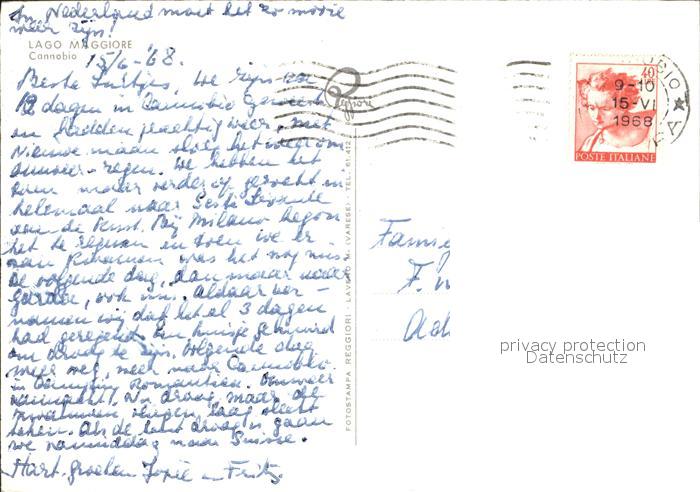 In Nederland moet het zo mooie
weer zijn!
LAGO MAGGIORE
Cannobio
15/6-'68.
Beste Luitjes, we zijn
12 dagen in Cannobio geweest
en hadden prachtig weer, met
nieuwe maan sloeg het weer om
onweer-regen. We hebben het
toen maar verder op gezocht in
helemaal naar Sestri Levante
aan de kust. Bij Milano begon
het te regenen en toen we er
aan kwamen was het nog mis
de volgende dag, dan maar naar
Garda, ook mis. Aldaar ver-
namen wij dat het al 3 dagen
had geregend. Een huisje gehuurd
om droog te zijn. Volgende dag
weer weg, weer naar Cannobio
in Camping Romantica. Onweer
vannacht. Nu droog, maar de
zwaluwen vliegen laag slecht
teken. Als de tent droog is gaan
we vanmiddag naar Suisse.
Hart. groeten Jopie en Frits
FOTOSTAMPA REGGIORI - LAVENO M. (VARESE) - TEL.
Reggiori
40
9-10
15-VI
1968
POSTE ITALIANE
Famie
F.
Ad
privacy protection
Datenschutz